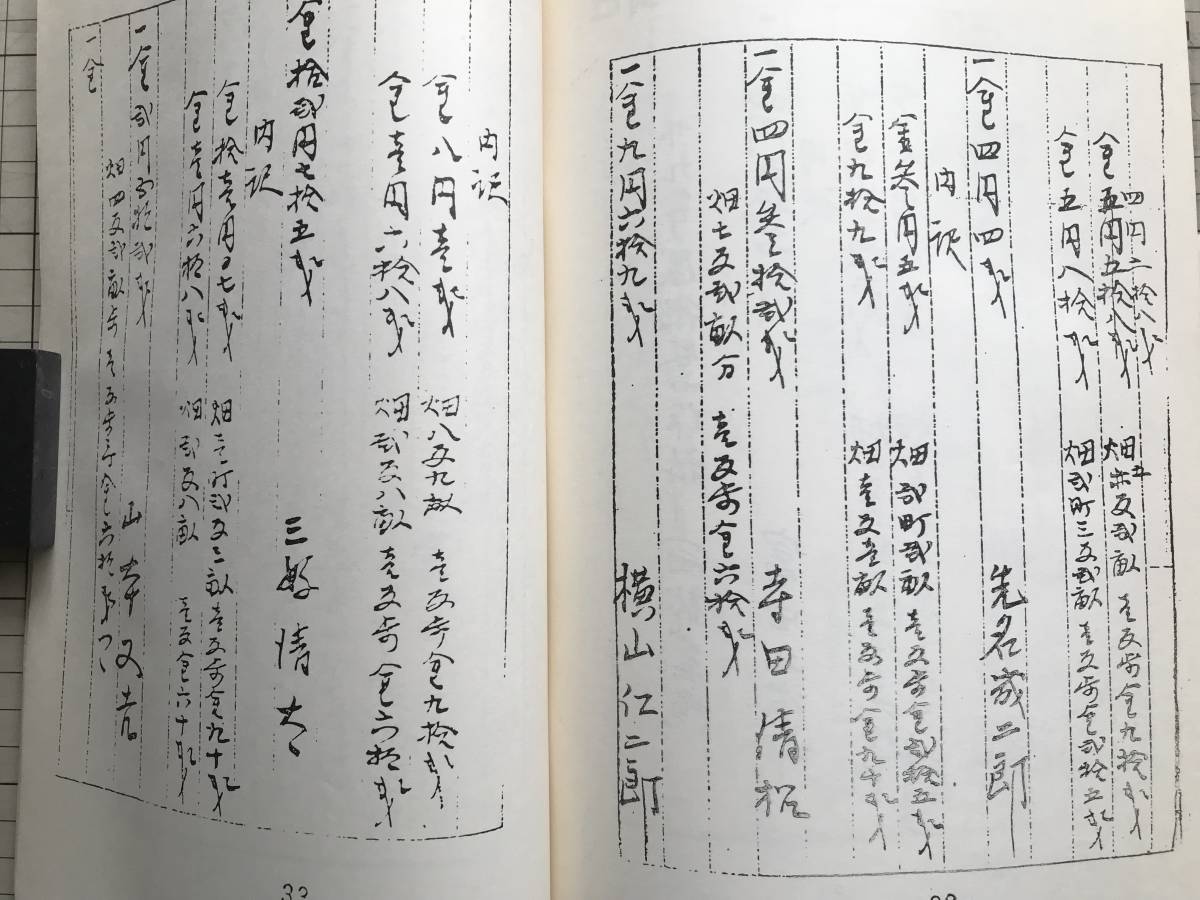 四円二拾八戋
金五円五拾八戋 畑五反弐畝 壱反歩金九拾戋
金五円八拾戋 畑弐町三反弐畝 壱反歩金弐拾五戋
一金四円四戋 先名歳二郎
内訳
金参円五戋 畑弐町弐畝 壱反歩金弐拾五戋
金九拾九戋 畑壱反壱畝 壱反歩金九十戋
一金四円参拾弐戋 寺田清松
畑七反弐畝分 壱反歩金六拾戋
一金九円六拾九戋 横山仁二郎
内訳
金八円壱戋 畑八反九畝 壱反歩金九拾戋
金壱円六拾八戋 畑弐反八畝 壱反歩金六拾戋
金拾弐円七拾五戋 三好清太
内訳
金拾壱円〇七戋 畑壱町弐反三畝 壱反歩金九十戋
金壱円六拾八戋 畑弐反八畝 壱反金六十戋
一金弐円五拾弐戋 山本又吉
畑四反弐畝歩 壱反歩ニ金六拾戋ツヽ
一金
33